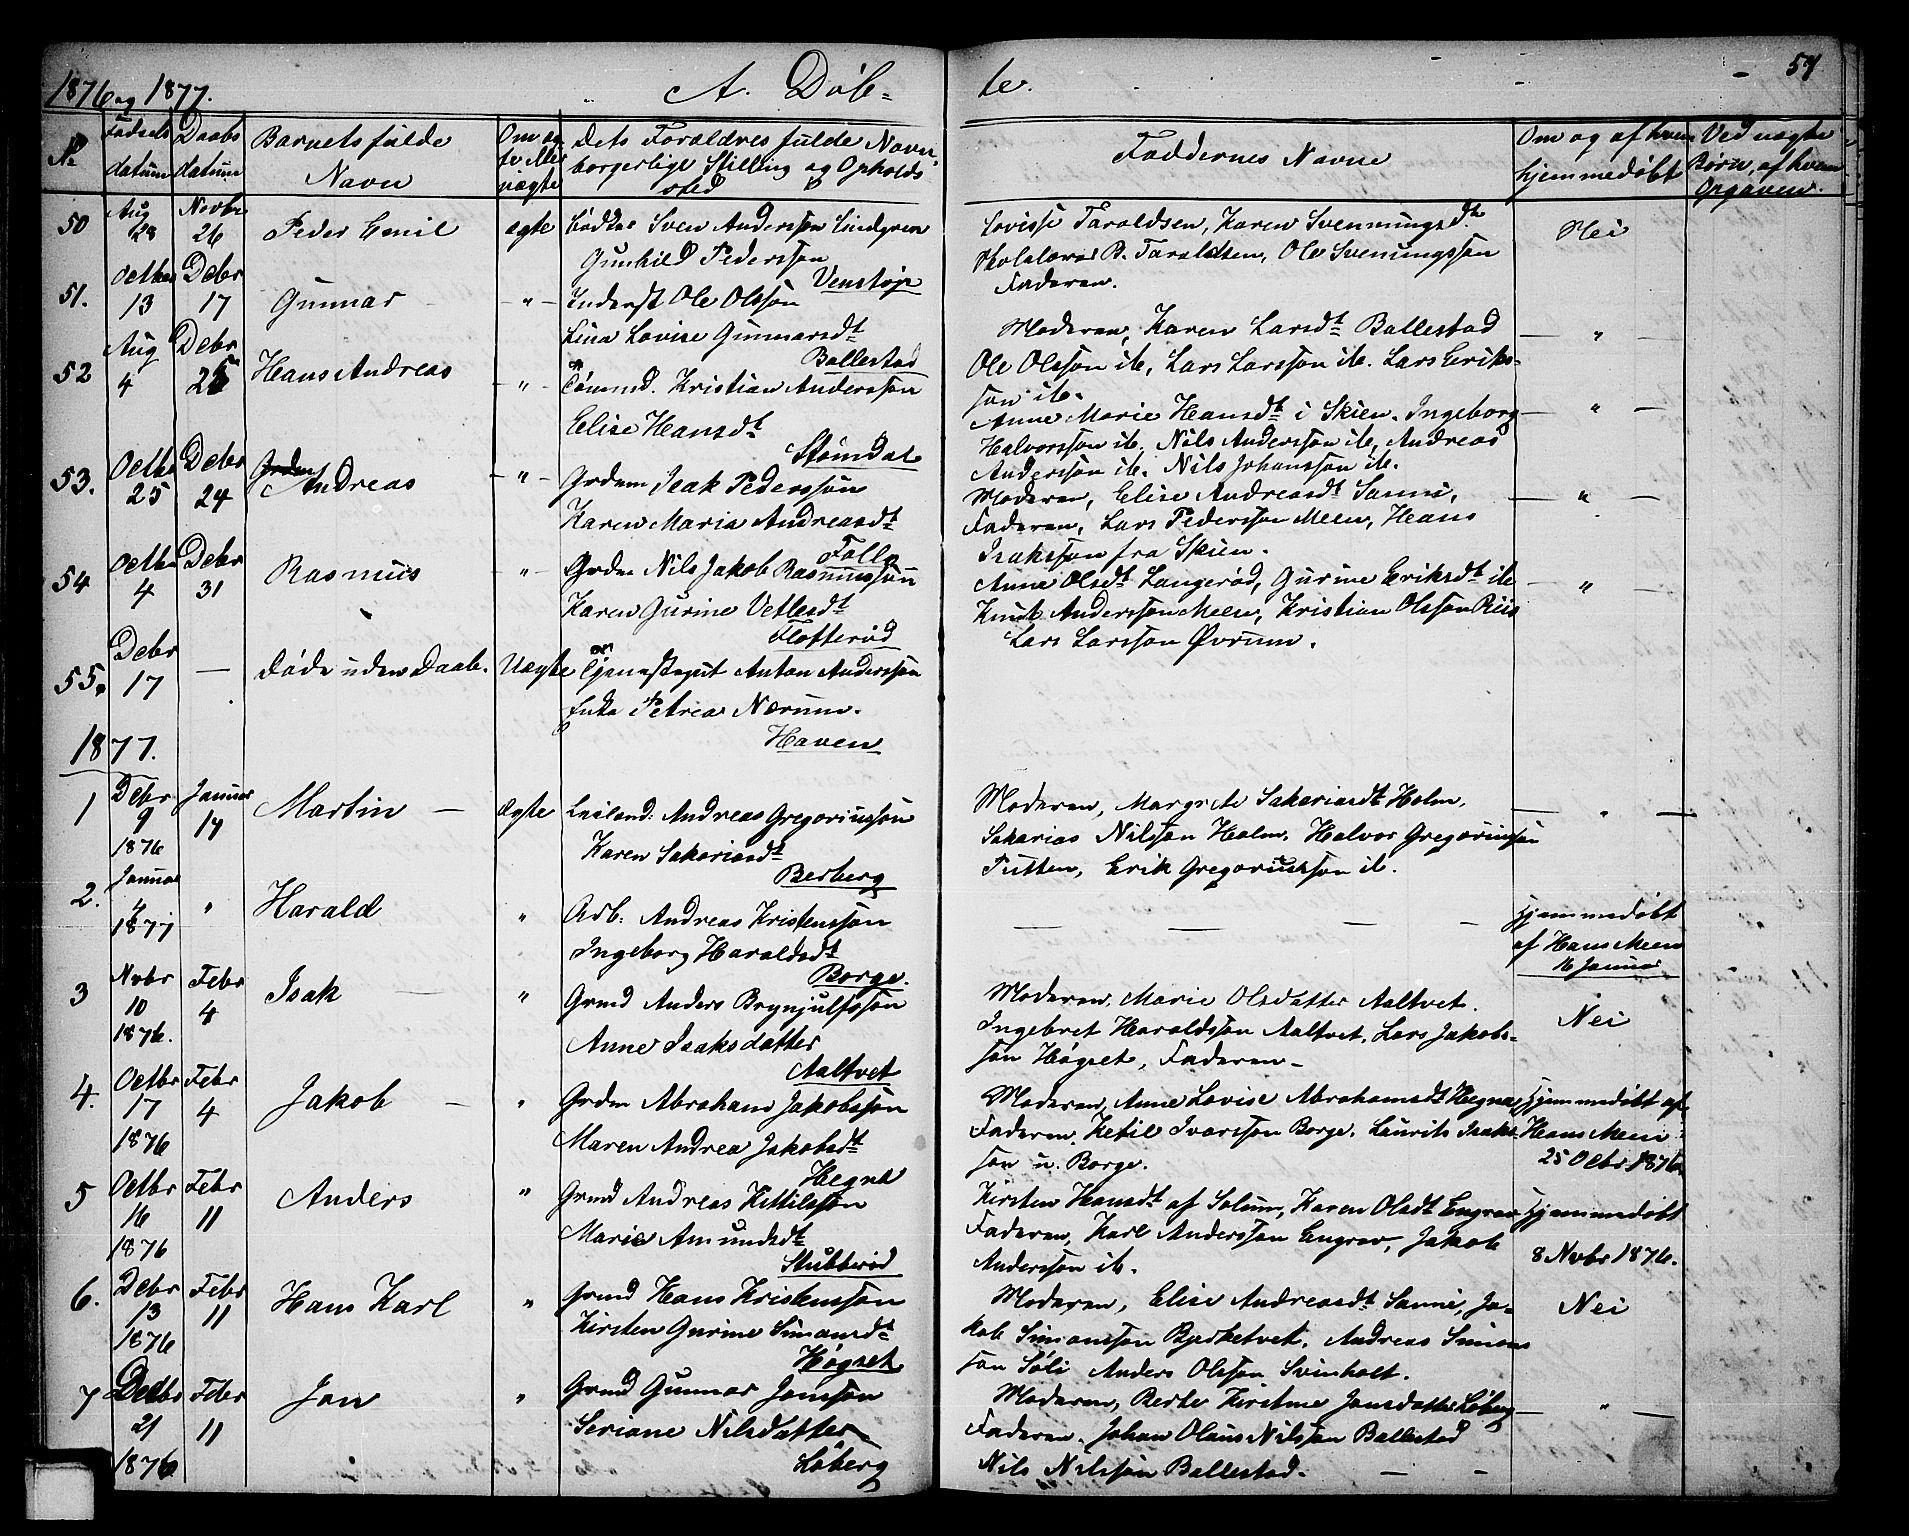 1876 og 1877.
A. Døb-
te.
57
No
Fødsels datum
Daabs datum
Barnets fulde Navn
Om ægte eller uægte
Dets Forældres fulde Navn, borgerlige Stilling og Opholds sted
Faddernes Navne
Om og af hvem hjemmedøbt
Ved uægte Børn, af hvem Opgaven.
50
Aug 28
Novbr 26
Peder Emil
ægte
Bødker Sven Andersson Lindgren
Gunhild Pedersson
Venstøp
Lovisse Taraldsen, Karen Svenningsdt
Skolelærer B. Taraldsen, Ole Svenungsson
Faderen.
Nei
51.
Octbr 13
Debr 17
Gunnar
- " -
Inderst Ole Olsson
Lina Lovise Gunnarsdt
Ballestad
Moderen, Karen Larsdt Ballestad
Ole Olsson ib, Lars Larsson ib. Lars Eriks-
son ib.
— " —
52
Aug 4
Debr 25
Hans Andreas
- " -
Tømmd. Kristian Andersson
Elise Hansdt
Stømdal
Anne Marie Hansdt i Skien. Ingeborg
Halvorsson ib, Nils Andersson ib, Andreas
Andersson ib. Nils Johansson ib.
— " —
53.
Octbr 25
Debr 24
Andreas
- " -
Grdm Isak Pedersson
Karen Maria Andreasdt
Falla
Moderen, Elise Andreasdt Sanni,
Faderen, Lars Pedersson Meen, Hans
Isaksson fra Skien.
— " —
54
Octbr 4
Debr 31
Rasmus
- " -
Grdm Nils Jakob Rasmusson
Karen Gurine Vetlesdt
Flotterød
Anne Olsdt Langerød, Gurine Eriksdt ib
Knut Andersson Meen, Kristian Olsson Riis
Lars Larsson Øvrum.
- " -
55.
Debr 17
—
Døde uden Daab.
Uægte
Tjenestegut Anton Andersson
Enke Petrea Nærum.
Haven
1877.
1
Debr 9 1876
Januar 14
Martin —
Ægte
Leiland: Andreas Gregoriusson
Karen Sakariasdt
Berberg
Moderen, Margrete Sakariasdt Holm,
Sakarias Nilsson Holm, Halvor Gregoriusson
Tutten, Erik Gregoriusson ib.
— " —
2.
Januar 4 1877
"
Harald
"
Arb: Andreas Kristensson
Ingeborg Haraldsdt
Borge.
— — — —
Hjemmedøbt
af Hans Meen
16 Januar
3
Novbr 10 1876.
Febr 4
Isak —
"
Grmd Anders Brynjulfsson
Anne Isaksdatter
Aaltvet
Moderen, Marie Olsdatter Aaltvet.
Ingebret Haraldsson Aaltvet, Lars Jakobs-
son Høgset, Faderen -
Nei
4.
Octbr 17 1876
Febr 4
Jakob -
"
Grdm Abraham Jakobsson
Maren Andrea Jakobsdt
Hegna
Moderen, Anne Lovise Abrahamsdt Hegna,
Faderen, Ketil Ivarsson Borge. Laurits Isaks-
son n. Borge.
Hjemmedøbt af
Hans Meen
25 Octbr 1876
5
Octbr 16 1876
Febr 11
Anders
"
Grmd Andreas Kittilsson
Marie Amundsdt
Stubberød
Kirsten Hansdt af Solum, Karen Olsdt Engrav
Faderen, Karl Andersson Engrav, Jakob
Andersson ib.
Hjemmedøbt
8 Novbr 1876.
6.
Debr 13 1876
Febr 11
Hans Karl
"
Grmd Hans Kristensson
Kirsten Gurine Simonsdt
Høgset
Moderen, Elise Andreasdt Sanni, Ja-
kob Simonsson Bjerketvet. Andreas Simons
son Søli Anders Olsson Svinholt.
Nei
7
Decbr 21 1876
Febr 11
Jan
"
Grmd Gunnar Jansson
Seriane Nilsdatter
Løberg
Moderen, Berte Kirstine Jansdatter Løberg
Faderen. Johan Olaus Nilsson Ballestad
Nils Nilsson Ballestad. — —
— " —